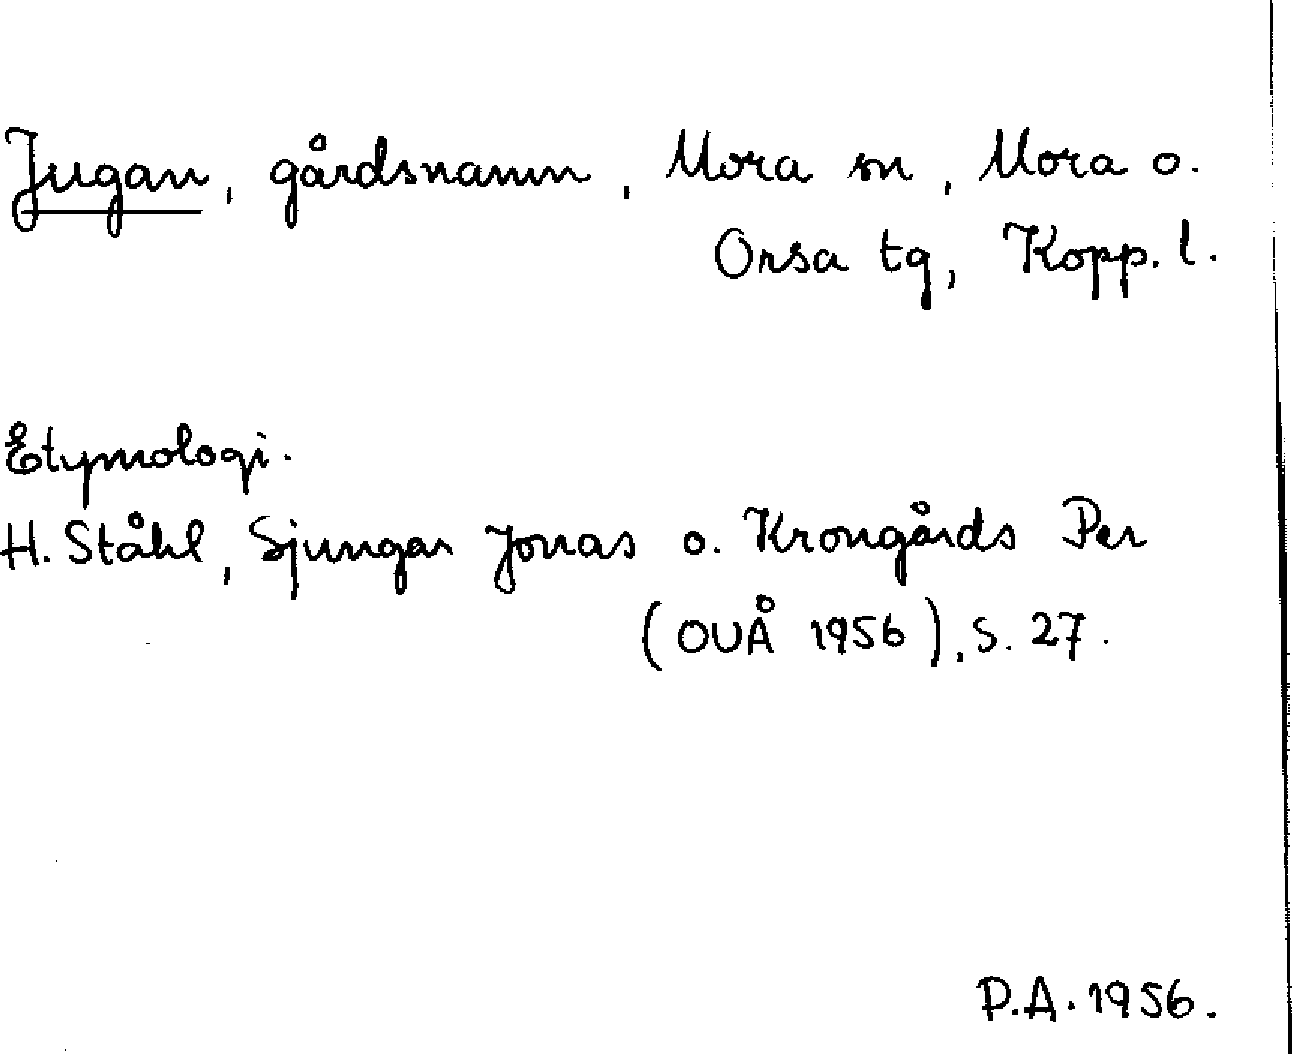 Jugan, gårdsnamn, Mora sn, Mora o.
Orsa tg, Kopp. l.
Etymologi.
H. Ståhl, Sjungar Jonas o. Krongårds Per
(OUÅ 1956), s. 27.
P.A. 1956.